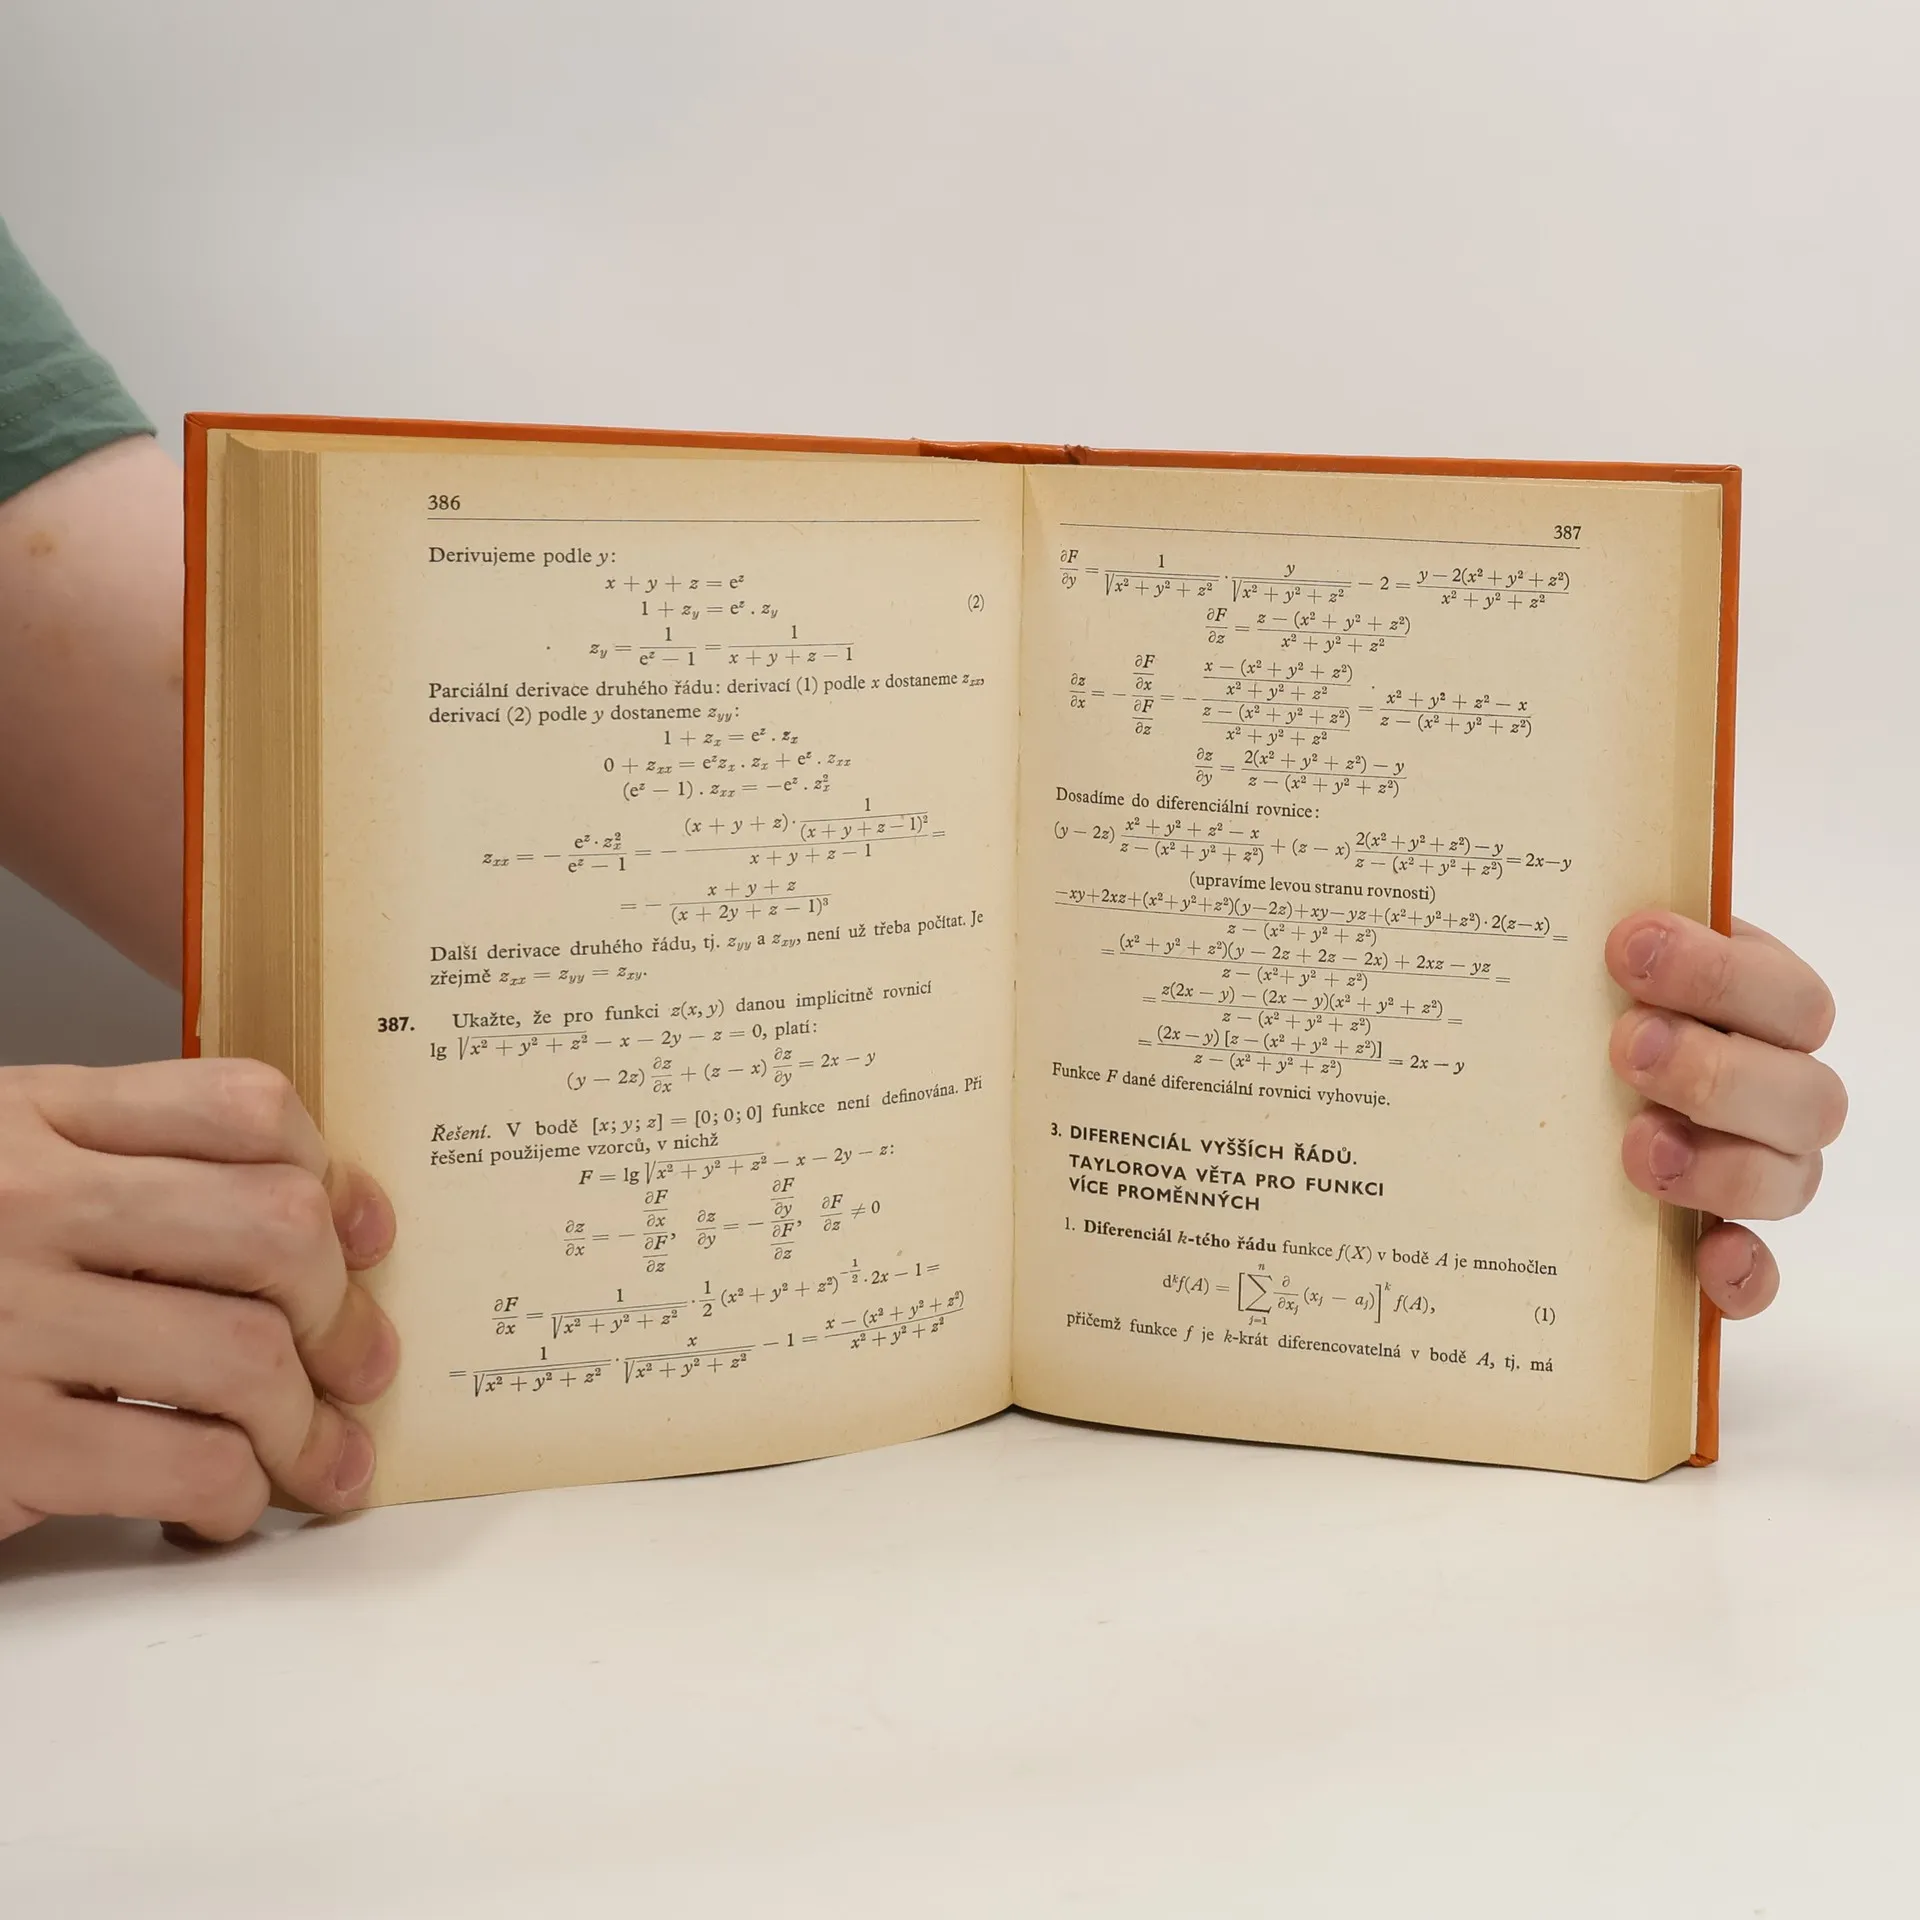 386
Derivujeme podle y:
x + y + z = e^z
1 + z_y = e^z . z_y (2)
z_y = 1/(e^z − 1) = 1/(x + y + z − 1)
Parciální derivace druhého řádu: derivací (1) podle x dostaneme z_xx,
derivací (2) podle y dostaneme z_yy:
1 + z_x = e^z . z_x
0 + z_xx = e^z z_x . z_x + e^z . z_xx
(e^z − 1) . z_xx = −e^z . z_x^2
z_xx = − (e^z · z_x^2)/(e^z − 1) = − ((x + y + z) · 1/(x + y + z − 1)^2)/(x + y + z − 1) =
= − (x + y + z)/(x + 2y + z − 1)^3
Další derivace druhého řádu, tj. z_yy a z_xy, není už třeba počítat. Je
zřejmě z_xx = z_yy = z_xy.
387. Ukažte, že pro funkci z(x, y) danou implicitně rovnicí
lg √(x² + y² + z²) − x − 2y − z = 0, platí:
(y − 2z) ∂z/∂x + (z − x) ∂z/∂y = 2x − y
Řešení. V bodě [x; y; z] = [0; 0; 0] funkce není definována. Při
řešení použijeme vzorců, v nichž
F = lg √(x² + y² + z²) − x − 2y − z:
∂z/∂x = − (∂F/∂x)/(∂F/∂z), ∂z/∂y = − (∂F/∂y)/(∂F/∂z), ∂F/∂z ≠ 0
∂F/∂x = 1/√(x² + y² + z²) · 1/2 (x² + y² + z²)^(−1/2) · 2x − 1 =
= 1/√(x² + y² + z²) · x/√(x² + y² + z²) − 1 = (x − (x² + y² + z²))/(x² + y² + z²)
387
∂F/∂y = 1/√(x² + y² + z²) · y/√(x² + y² + z²) − 2 = (y − 2(x² + y² + z²))/(x² + y² + z²)
∂F/∂z = (z − (x² + y² + z²))/(x² + y² + z²)
∂z/∂x = − (∂F/∂x)/(∂F/∂z) = − ((x − (x² + y² + z²))/(x² + y² + z²))/((z − (x² + y² + z²))/(x² + y² + z²)) = (x² + y² + z² − x)/(z − (x² + y² + z²))
∂z/∂y = (2(x² + y² + z²) − y)/(z − (x² + y² + z²))
Dosadíme do diferenciální rovnice:
(y − 2z) (x² + y² + z² − x)/(z − (x² + y² + z²)) + (z − x) (2(x² + y² + z²) − y)/(z − (x² + y² + z²)) = 2x − y
(upravíme levou stranu rovnosti)
(−xy+2xz+(x²+y²+z²)(y−2z)+xy−yz+(x²+y²+z²) · 2(z−x))/(z − (x² + y² + z²)) =
= ((x² + y² + z²)(y − 2z + 2z − 2x) + 2xz − yz)/(z − (x² + y² + z²)) =
= (z(2x − y) − (2x − y)(x² + y² + z²))/(z − (x² + y² + z²)) =
= ((2x − y) [z − (x² + y² + z²)])/(z − (x² + y² + z²)) = 2x − y
Funkce F dané diferenciální rovnici vyhovuje.
3. DIFERENCIÁL VYŠŠÍCH ŘÁDŮ.
TAYLOROVA VĚTA PRO FUNKCI
VÍCE PROMĚNNÝCH
1. Diferenciál k-tého řádu funkce f(X) v bodě A je mnohočlen
d^k f(A) = [∑_{j=1}^{n} ∂/∂x_j (x_j − a_j)]^k f(A), (1)
přičemž funkce f je k-krát diferencovatelná v bodě A, tj. má